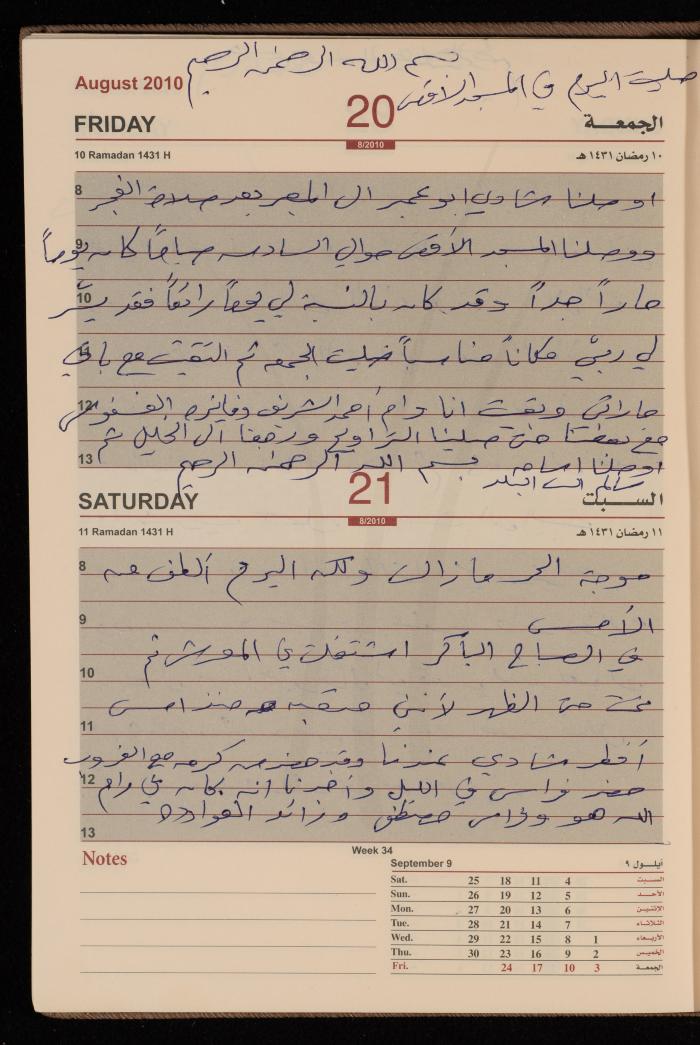 بسم الله الرحمن الرحيم
صليت اليوم في المسجد الأقصى
August 2010
20
FRIDAY
الجمعة
8/2010
10 Ramadan 1431 H
١٠ رمضان ١٤٣١ هـ
8
اوصلنا شادي ابو عمر الى المعبر بعد صلاة الفجر
9
ووصلنا المسجد الأقصى حوالي السادسه صباحاً كان يوماً
10
حاراً جداً وقد كان بالنسبة لي يوماً رائعاً فقد يسّر
11
لي ربّي مكاناً مناسباً صليت الجمعه ثم التقيت مع باقي
12
جاراتي وبقيت انا وام أحمد الشريف وفايزه
مع بعضنا حتى صلينا التراويح ورجعنا الى الخليل ثم
13
اوصلنا اسامه سالم الى البلد
بسم الله الرحمن الرحيم
21
SATURDAY
السبت
8/2010
11 Ramadan 1431 H
١١ رمضان ١٤٣١ هـ
8
موجة الحر ما زالت ولكن اليوم ألطف من
9
الأمس
في الصباح الباكر اشتغلت في ثم
10
نمت حتى الظهر لأنني متعبه منذ امس
11
أفطر شادي عندنا وقد حضر من كرمه مع الغروب
12
حضر فراس في الليل وأخبرنا انه كان في رام
13
الله هو وفراس مصطفى ورائد العواوده
Notes
Week 34
September 9
أيلـول ٩
Sat. 25 18 11 4 السبت
Sun. 26 19 12 5 الأحد
Mon. 27 20 13 6 الإثنين
Tue. 28 21 14 7 الثلاثاء
Wed. 29 22 15 8 1 الأربعاء
Thu. 30 23 16 9 2 الخميس
Fri. 24 17 10 3 الجمعة